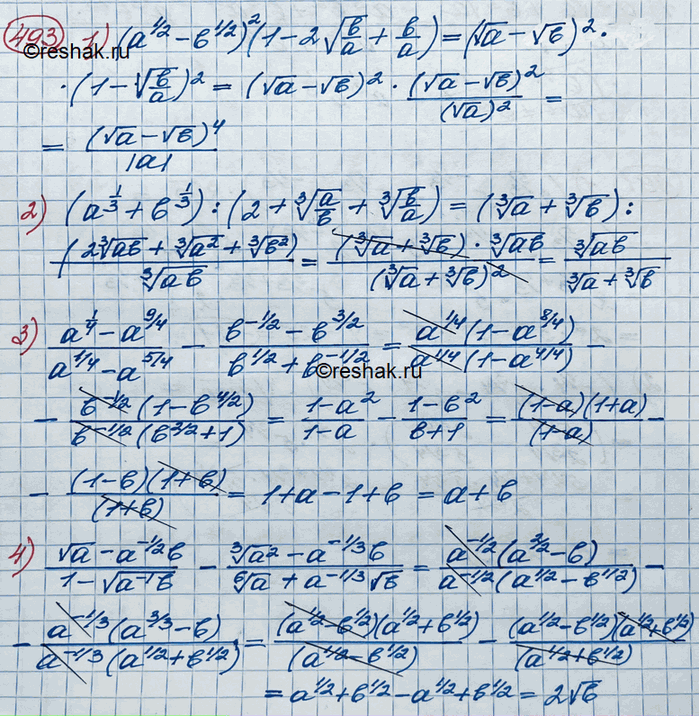 493 1) (a^{1/2} - b^{1/2})^2 (1 - 2√(b/a) + b/a) = (√a - √b)^2 ·
©reshak.ru
· (1 - √(b/a))^2 = (√a - √b)^2 · (√a - √b)^2/(√a)^2 =
= (√a - √b)^4/|a|
2) (a^{1/3} + b^{1/3}) : (2 + ∛(a/b) + ∛(b/a)) = (∛a + ∛b) :
(2∛ab + ∛a^2 + ∛b^2)/∛ab = (∛a + ∛b) · ∛ab/(∛a + ∛b)^2 = ∛ab/(∛a + ∛b)
3) (a^{1/4} - a^{9/4})/(a^{1/4} - a^{5/4}) - (b^{-1/2} - b^{3/2})/(b^{1/2} + b^{-1/2}) = a^{1/4}(1 - a^{8/4})/(a^{1/4}(1 - a^{4/4})) -
©reshak.ru
- b^{-1/2}(1 - b^{4/2})/(b^{-1/2}(b^{2/2} + 1)) = (1 - a^2)/(1 - a) - (1 - b^2)/(b + 1) = (1 - a)(1 + a)/(1 - a) -
- (1 - b)(1 + b)/(1 + b) = 1 + a - 1 + b = a + b
4) (√a - a^{-1/2}b)/(1 - √(a^{-1}b)) - (∛a^2 - a^{-1/3}b)/(⁶√a + a^{-1/3}√b) = a^{-1/2}(a^{2/2} - b)/(a^{-1/2}(a^{1/2} - b^{1/2})) -
- a^{-1/3}(a^{3/3} - b)/(a^{-1/3}(a^{1/2} + b^{1/2})) = (a^{1/2} - b^{1/2})(a^{1/2} + b^{1/2})/(a^{1/2} - b^{1/2}) - (a^{1/2} - b^{1/2})(a^{1/2} + b^{1/2})/(a^{1/2} + b^{1/2})
= a^{1/2} + b^{1/2} - a^{1/2} + b^{1/2} = 2√b